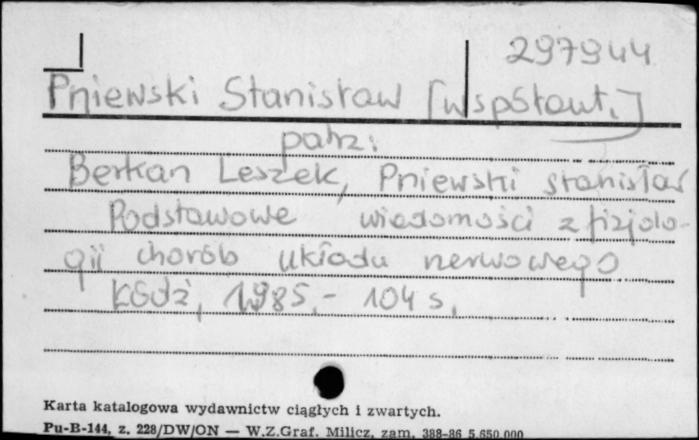 297944
Pniewski Stanisław [współaut.]
patrz:
Berkan Leszek, Pniewski Stanisław
Podstawowe wiadomości z fizjolo-
gii chorób układu nerwowego
Łódź, 1985.- 104 s.
Karta katalogowa wydawnictw ciągłych i zwartych.
Pu-B-144, z. 228/DW/ON — W.Z.Graf. Milicz, zam. 388-86 5.650.000